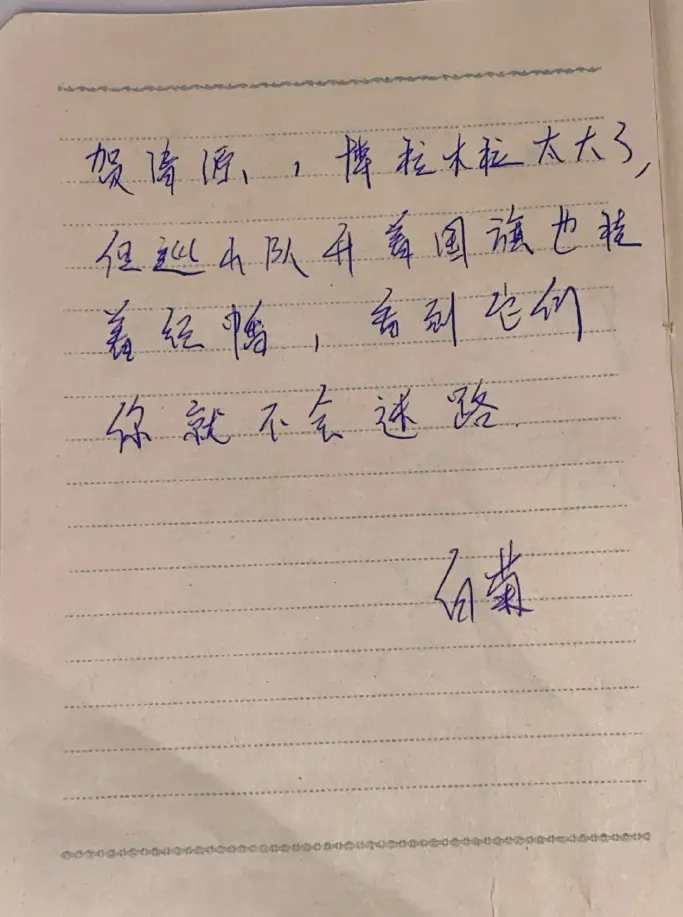 贺清源，，博拉木拉太大了，
但巡山队升着国旗也挂
着经幡，看到它们
你就不会迷路.
白菊